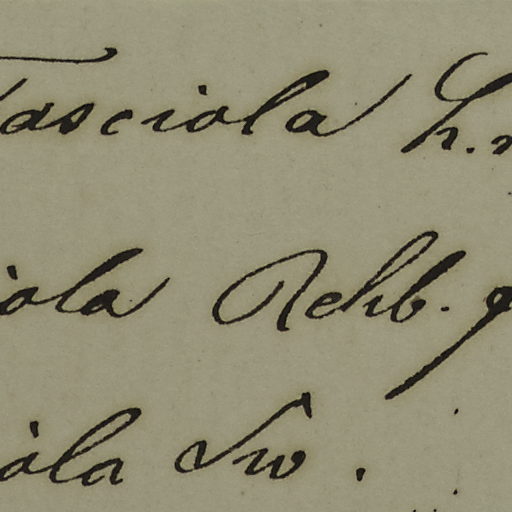 Fasciola h. n
iola Rchb. p
iola Sw.